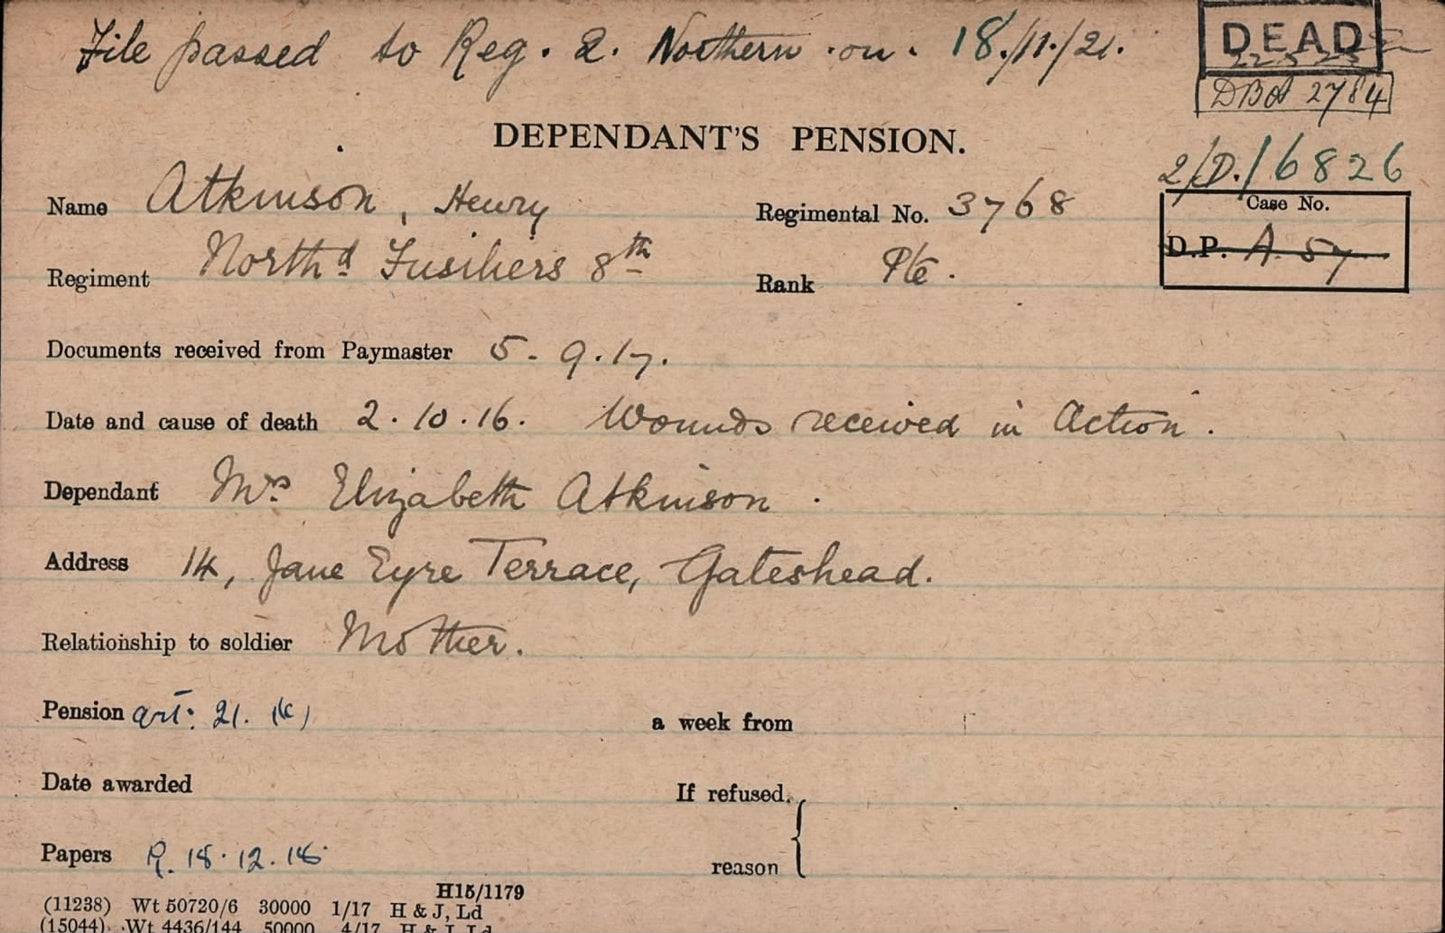 File passed to Reg. 2. Northern on. 18/11/21.
DEAD
DBA 2784
DEPENDANT'S PENSION.
2/D./6826
Name Atkinson, Henry
Regimental No. 3768
Case No.
D.P. A. 57
Regiment North'd Fusiliers 8th
Rank Pte.
Documents received from Paymaster 5.9.17.
Date and cause of death 2.10.16. Wounds received in Action.
Dependant Mrs Elizabeth Atkinson.
Address 14, Jane Eyre Terrace, Gateshead.
Relationship to soldier Mother.
Pension art: 21. a week from
Date awarded If refused,
Papers R. 18.12.18 reason
H15/1179
(11238) Wt 50720/6 30000 1/17 H & J, Ld
(15044) Wt 4436/144 50000 4/17 H & J, Ld